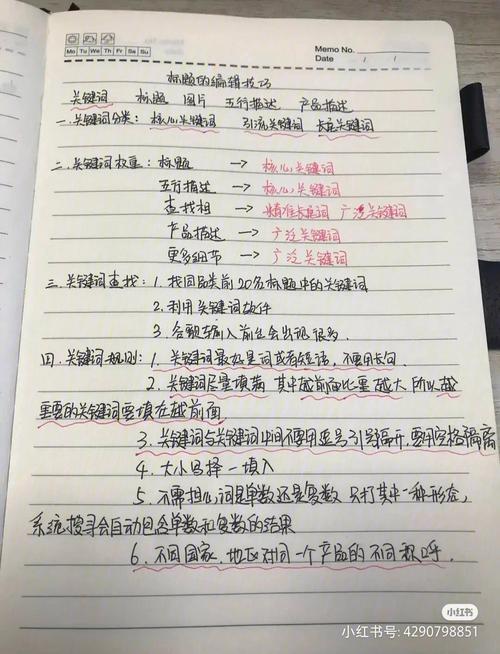 Memo No.
Mo Tu We Th Fr Sa Su
Date / /
标题的编辑技巧
关键词 标题 图片 五行描述 产品描述
一.关键词分类: 核心关键词 引流关键词 长尾关键词
二.关键词权重: 标题 → 核心关键词
五行描述 → 核心关键词
查找相 → 精准长尾词 广泛关键词
产品描述 → 广泛关键词
更多细节 → 广泛关键词
三.关键词查找: 1. 找同品类前20名标题中的关键词
2. 利用关键词软件
3. 输入前 会出现很多.
四.关键词规则: 1. 关键词最好是词或者短语,不要用长句
2. 关键词尽量填满 其中越前面比重越大 所以越
重要的关键词要填在越前面
3. 关键词与关键词中间不要用逗号引号隔开,要用空格隔离
4. 大小写择一填入
5. 不需担心词是单数还是复数 只打其中一种形态,
系统搜寻会自动包含单数和复数的结果
6. 不同国家、地区对同一个产品的不同称呼.
小红书
小红书号: 4290798851